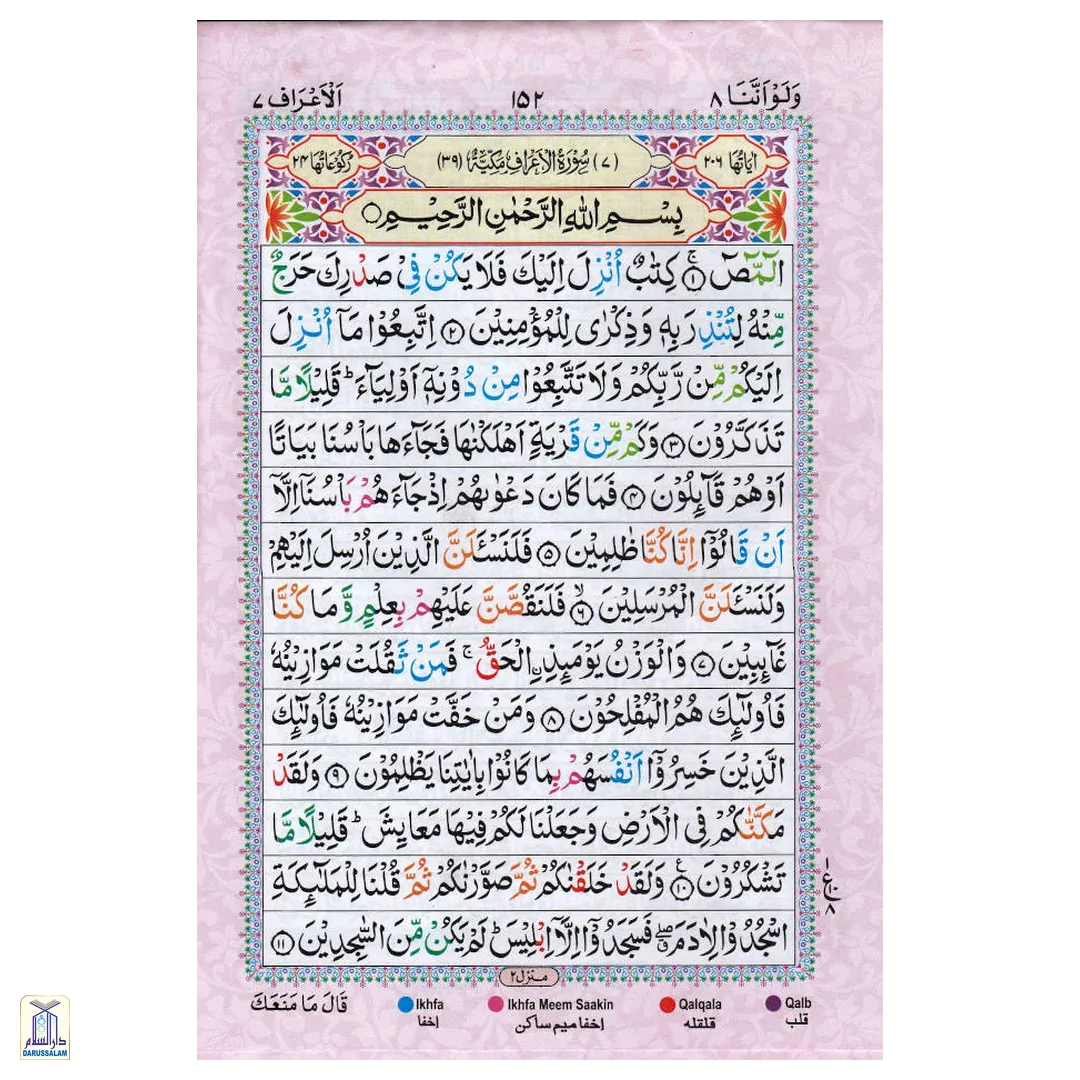 وَلَوْ اَنَّنَا ۸ ۱۵۲ اَلْاَعْرَاف ۷
اٰیَاتُهَا ۲۰۶ (۷) سُوْرَةُ الْاَعْرَافِ مَكِّیَّةٌ (۳۹) رُكُوْعَاتُهَا ۲۴
بِسْمِ اللّٰهِ الرَّحْمٰنِ الرَّحِیْمِ
الٓمّٓصٓ ۚ﴿۱﴾ كِتٰبٌ اُنْزِلَ اِلَیْكَ فَلَا یَكُنْ فِیْ صَدْرِكَ حَرَجٌ
مِّنْهُ لِتُنْذِرَ بِهٖ وَذِكْرٰی لِلْمُؤْمِنِیْنَ ﴿۲﴾ اِتَّبِعُوْا مَاۤ اُنْزِلَ
اِلَیْكُمْ مِّنْ رَّبِّكُمْ وَلَا تَتَّبِعُوْا مِنْ دُوْنِهٖۤ اَوْلِیَآءَ ؕ قَلِیْلًا مَّا
تَذَكَّرُوْنَ ﴿۳﴾ وَكَمْ مِّنْ قَرْیَةٍ اَهْلَكْنٰهَا فَجَآءَهَا بَاْسُنَا بَیَاتًا
اَوْ هُمْ قَآىِٕلُوْنَ ﴿۴﴾ فَمَا كَانَ دَعْوٰىهُمْ اِذْ جَآءَهُمْ بَاْسُنَاۤ اِلَّاۤ
اَنْ قَالُوْۤا اِنَّا كُنَّا ظٰلِمِیْنَ ﴿۵﴾ فَلَنَسْـَٔلَنَّ الَّذِیْنَ اُرْسِلَ اِلَیْهِمْ
وَلَنَسْـَٔلَنَّ الْمُرْسَلِیْنَ ۙ﴿۶﴾ فَلَنَقُصَّنَّ عَلَیْهِمْ بِعِلْمٍ وَّمَا كُنَّا
غَآىِٕبِیْنَ ﴿۷﴾ وَالْوَزْنُ یَوْمَىِٕذِ ِ۟الْحَقُّ ۚ فَمَنْ ثَقُلَتْ مَوَازِیْنُهٗ
فَاُولٰٓىِٕكَ هُمُ الْمُفْلِحُوْنَ ﴿۸﴾ وَمَنْ خَفَّتْ مَوَازِیْنُهٗ فَاُولٰٓىِٕكَ
الَّذِیْنَ خَسِرُوْۤا اَنْفُسَهُمْ بِمَا كَانُوْا بِاٰیٰتِنَا یَظْلِمُوْنَ ﴿۹﴾ وَلَقَدْ
مَكَّنّٰكُمْ فِی الْاَرْضِ وَجَعَلْنَا لَكُمْ فِیْهَا مَعَایِشَ ؕ قَلِیْلًا مَّا
تَشْكُرُوْنَ ﴿۱۰﴾ع وَلَقَدْ خَلَقْنٰكُمْ ثُمَّ صَوَّرْنٰكُمْ ثُمَّ قُلْنَا لِلْمَلٰٓىِٕكَةِ
اسْجُدُوْا لِاٰدَمَ ۖۗ فَسَجَدُوْۤا اِلَّاۤ اِبْلِیْسَ ؕ لَمْ یَكُنْ مِّنَ السّٰجِدِیْنَ ﴿۱۱﴾
منزل ۲
Qalb Qalqala Ikhfa Meem Saakin Ikhfa قَالَ مَا مَنَعَكَ
قلب قلقله إخفا میم ساکن إخفا
دارالسلام
DARUSSALAM